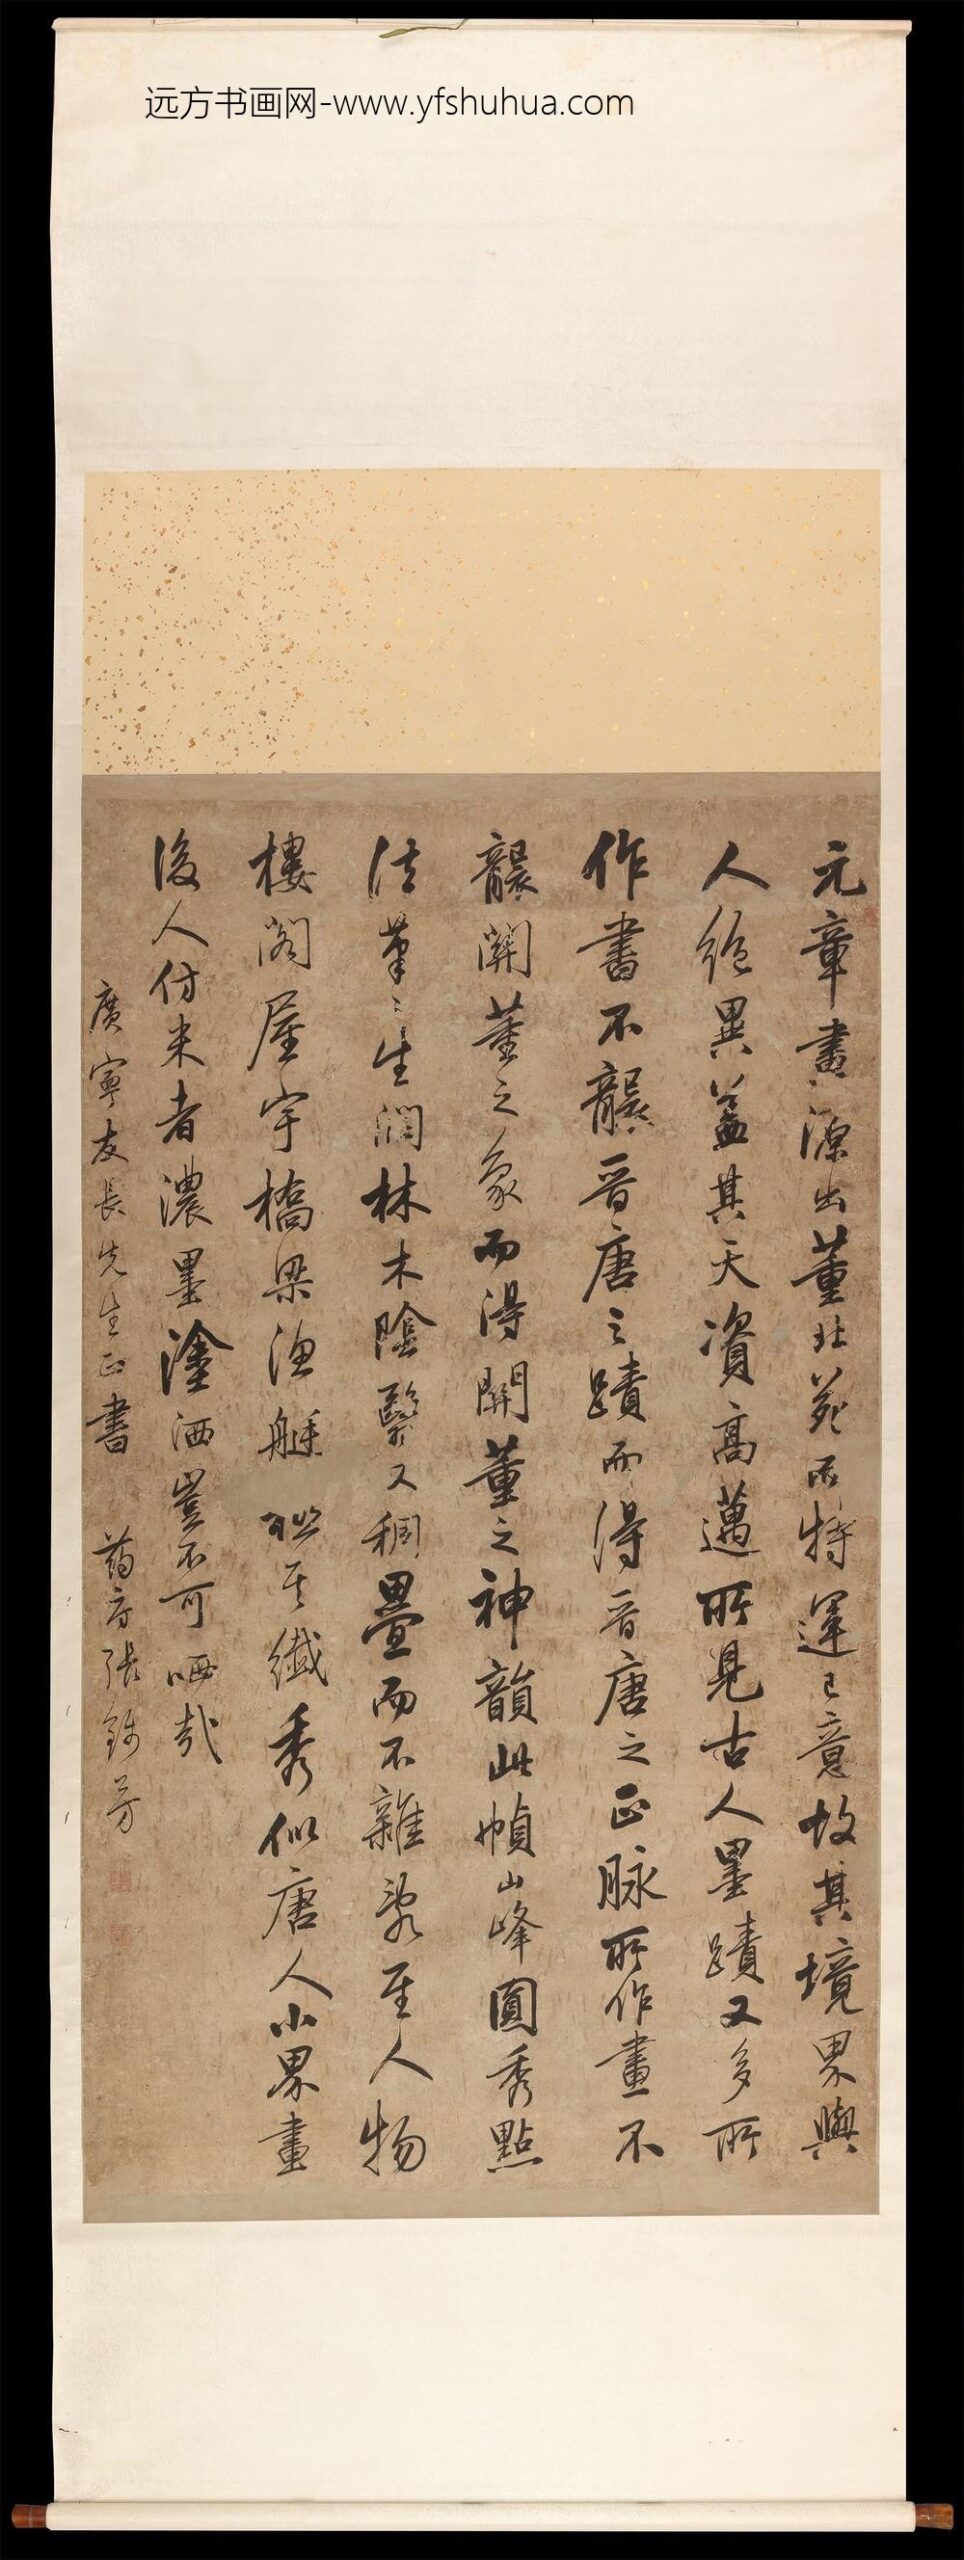 远方书画网-www.yfshuhua.com
元章畫源出董北苑而特運己意故其境界與
人絶異蓋其天資高邁所見古人墨蹟又多所
作書不襲晋唐之蹟而得晋唐之正脉所作畫不
襲關董之象而得關董之神韻此幀山峰圓秀點
法筆〻生潤林木陰翳又稠疊而不雜亂至人物
樓閣屋宇橋梁漁艇纖秀似唐人小界畫
後人仿米者濃墨塗洒豈不可哂哉
廣寧友長先生正書
药房張錦芳